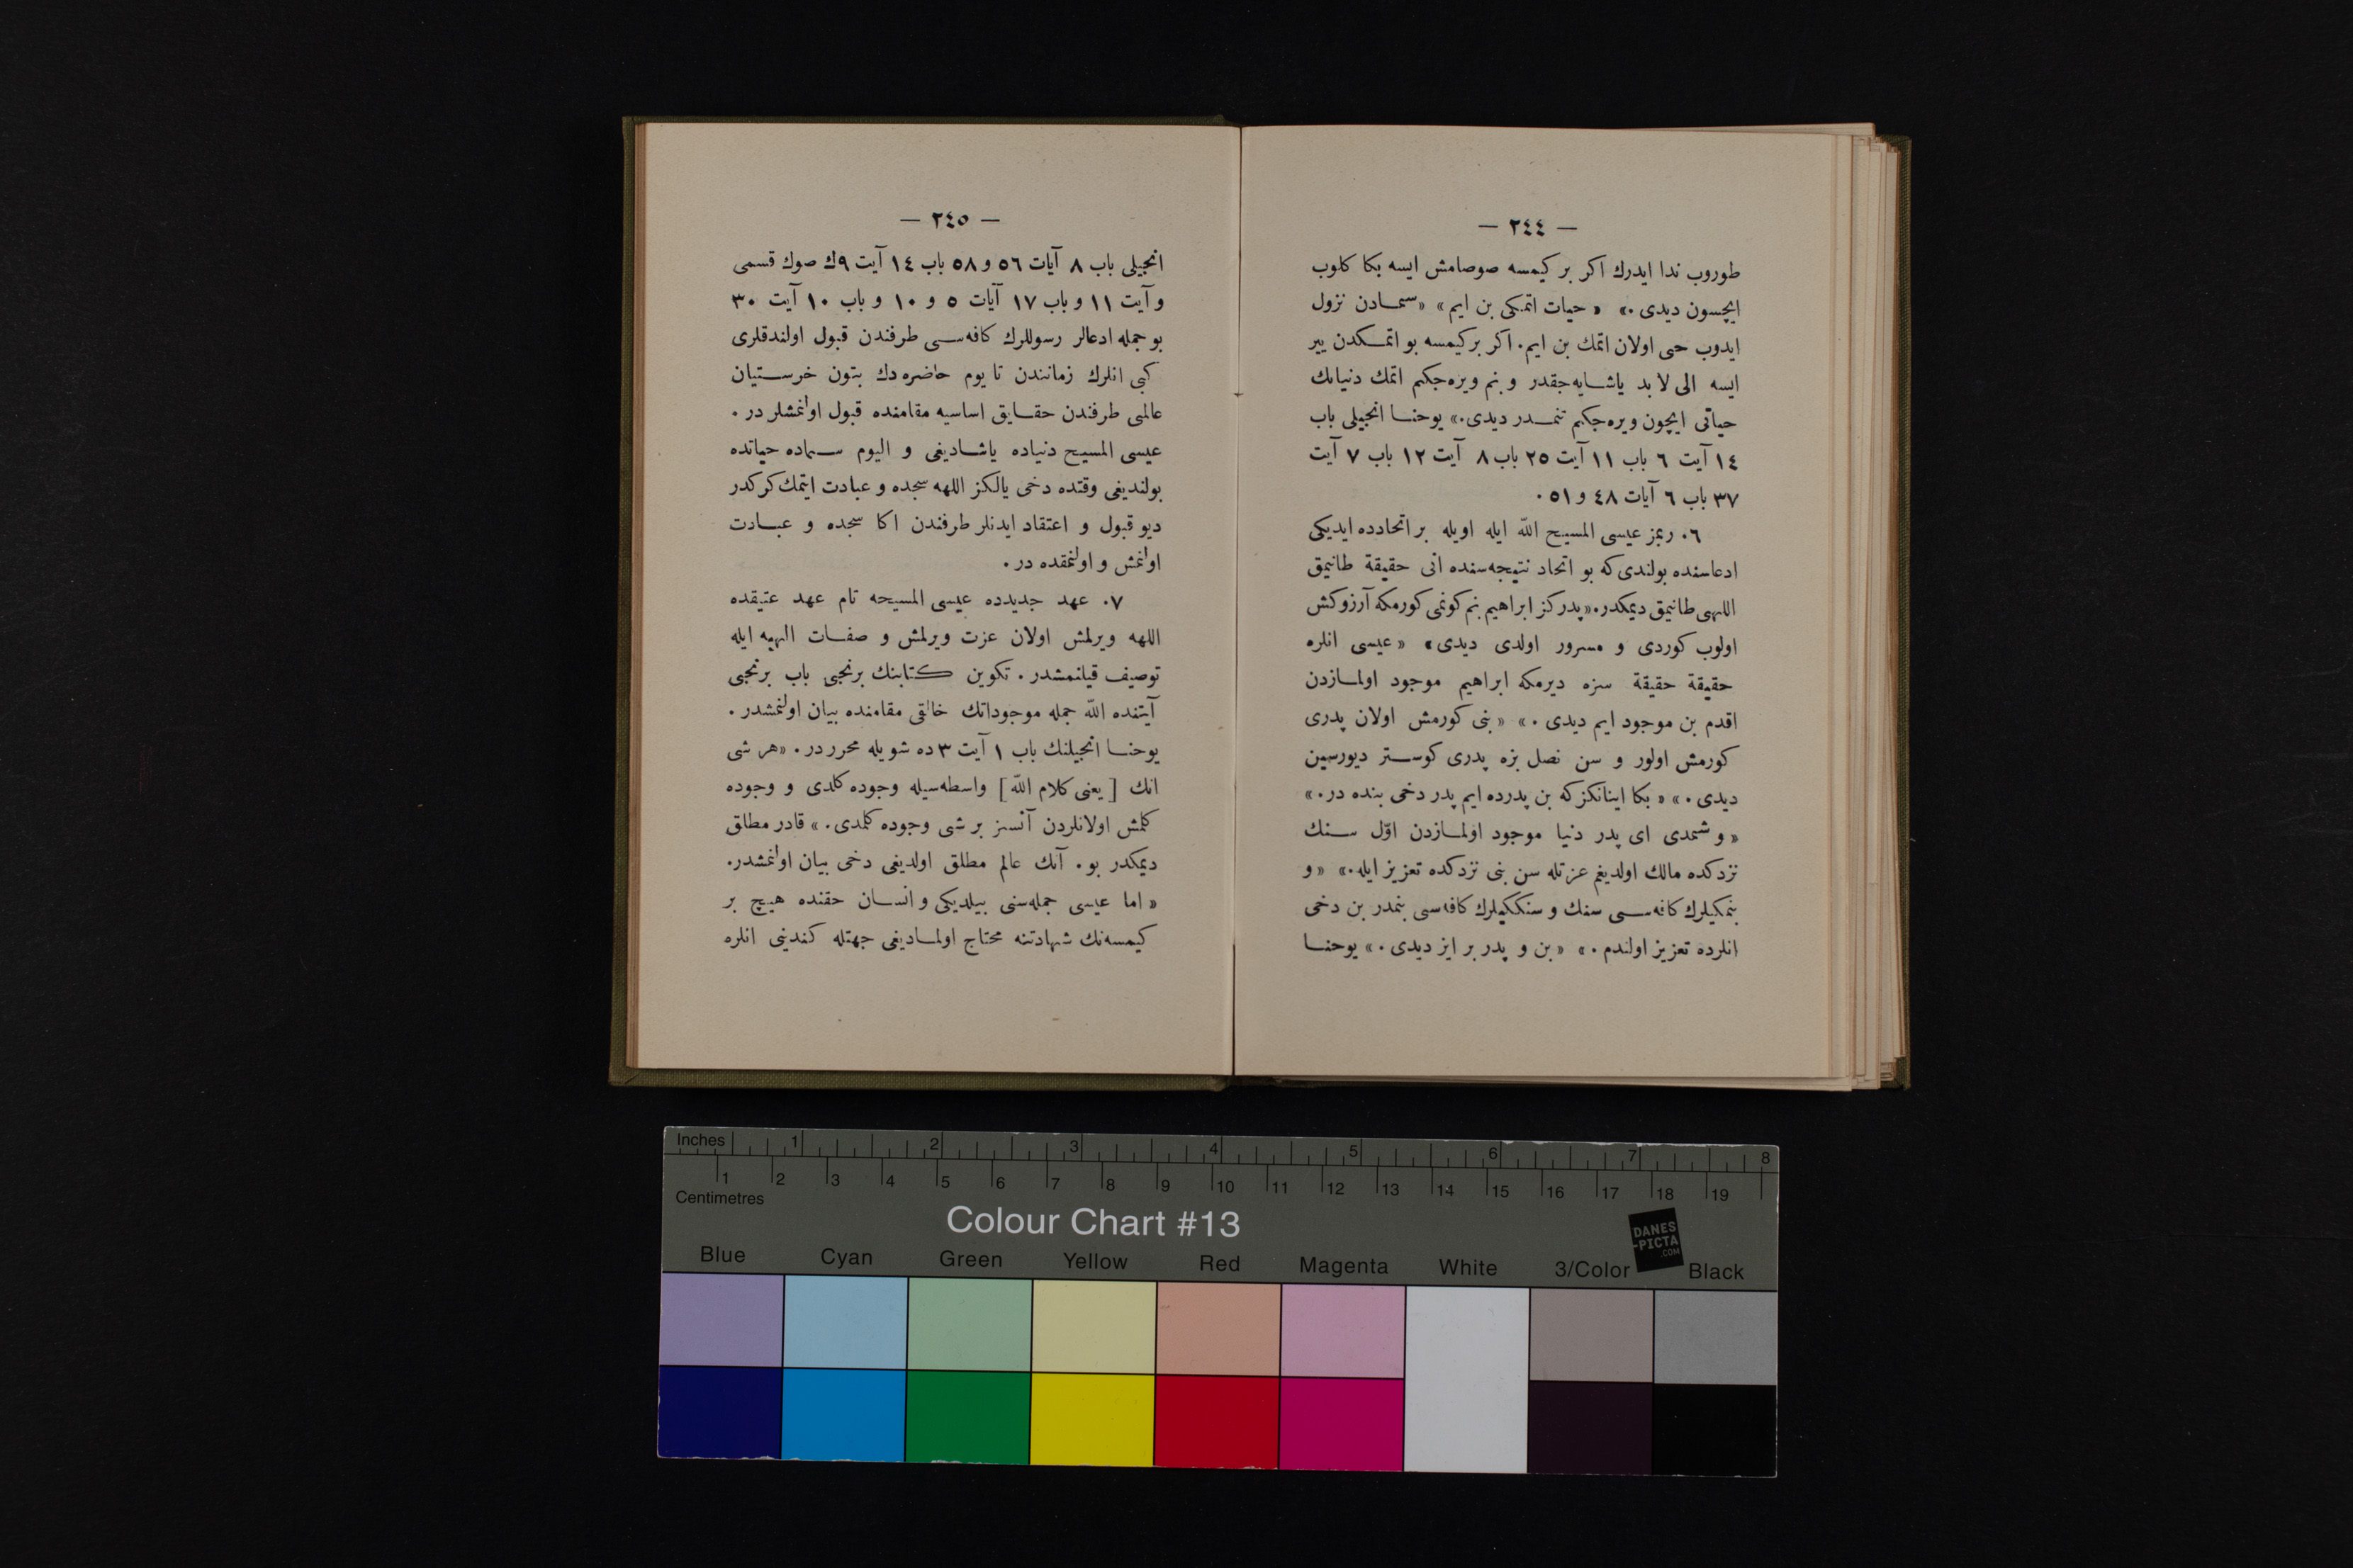 — ٢٤٤ —
طوروب ندا ایدرك اکر بر کیمسه صوصامش ایسه بکا کلوب
ایچسون دیدی.» « حیات اتمکی بن ایم» «سمادن نزول
ایدوب حی اولان اتمك بن ایم. اکر برکیمسه بو اتمکدن ییر
ایسه الی لابد یاشایه‌جقدر و بنم ویره‌جکم اتمك دنیانك
حیاتی ایچون ویره‌جکم تنمدر دیدی.» یوحنا انجیلی باب
١٤ آیت ٦ باب ١١ آیت ٢٥ باب ٨ آیت ١٢ باب ٧ آیت
٣٧ باب ٦ آیات ٤٨ و ٥١ .
٦. ربمز عیسی المسیح الله ایله اویله بر اتحادده ایدیکی
ادعاسنده بولندی که بو اتحاد نتیجه‌سنده انی حقیقة طانیمق
اللهی طانیمق دیمکدر. «پدرکز ابراهیم بنم کونمی کورمکه آرزوکش
اولوب کوردی و مسرور اولدی دیدی» «عیسی انلره
حقیقة حقیقة سزه دیرمکه ابراهیم موجود اولمازدن
اقدم بن موجود ایم دیدی .» «بنی کورمش اولان پدری
کورمش اولور و سن نصل بزه پدری کوستر دیورسین
دیدی .» « بکا اینانکز که بن پدرده ایم پدر دخی بنده در.»
« و شمدی ای پدر دنیا موجود اولمازدن اوّل سنك
نزدکده مالك اولدیغم عزتله سن بنی نزدکده تعزیز ایله.» «و
بنمکیلرك کافه‌سی سنك و سنککیلرك کافه‌سی بنمدر بن دخی
انلرده تعزیز اولندم .» «بن و پدر بر ایز دیدی .» یوحنا
— ٢٤٥ —
انجیلی باب ٨ آیات ٥٦ و ٥٨ باب ١٤ آیت ٩ك صوك قسمی
و آیت ١١ و باب ١٧ آیات ٥ و ١٠ و باب ١٠ آیت ٣٠
بو جمله ادعالر رسوللرك کافه‌سی طرفندن قبول اولندقلری
کبی انلرك زمانندن تا یوم حاضره‌دك بتون خرستیان
عالمی طرفندن حقایق اساسیه مقامنده قبول اولنمشلر در .
عیسی المسیح دنیاده یاشادیغی و الیوم سماده حیاتده
بولندیغی وقتده دخی یالکز اللهه سجده و عبادت ایتمك کرکدر
دیو قبول و اعتقاد ایدنلر طرفندن اکا سجده و عبادت
اولنمش و اولنمقده در .
٧. عهد جدیدده عیسی المسیحه تام عهد عتیقده
اللهه ویرلمش اولان عزت ویرلمش و صفات الهیه ایله
توصیف قیلنمشدر . تکوین کتابنك برنجی باب برنجی
آیتنده الله جمله موجوداتك خالقی مقامنده بیان اولنمشدر .
یوحنا انجیلنك باب ١ آیت ٣ ده شویله محرردر . «هر شی
انك [ یعنی کلام الله ] واسطه‌سیله وجوده کلدی و وجوده
کلمش اولانلردن آنسز بر شی وجوده کلمدی .» قادر مطلق
دیمکدر بو . آنك عالم مطلق اولدیغی دخی بیان اولنمشدر.
« اما عیسی جمله‌سنی بیلدیکی و انسان حقنده هیچ بر
کیمسه‌نك شهادتنه محتاج اولمادیغی جهتله کندینی انلره
Inches 1 2 3 4 5 6 7 8
1 2 3 4 5 6 7 8 9 10 11 12 13 14 15 16 17 18 19
Centimetres
Colour Chart #13
DANES
-PICTA
.COM
Blue Cyan Green Yellow Red Magenta White 3/Color Black